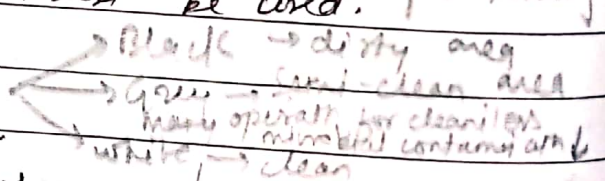 be used.
Black → dirty area
Grey → Semi-clean area
many operatn for cleanliness
microbial contaminatn ↓
white → clean